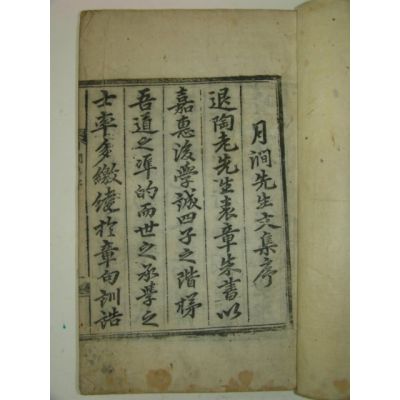 月澗先生文集序
退陶老先生表章朱書以
嘉惠後學誠四子之階梯
吾道之準的而世之承學之
士率多繳繞於章句訓誥